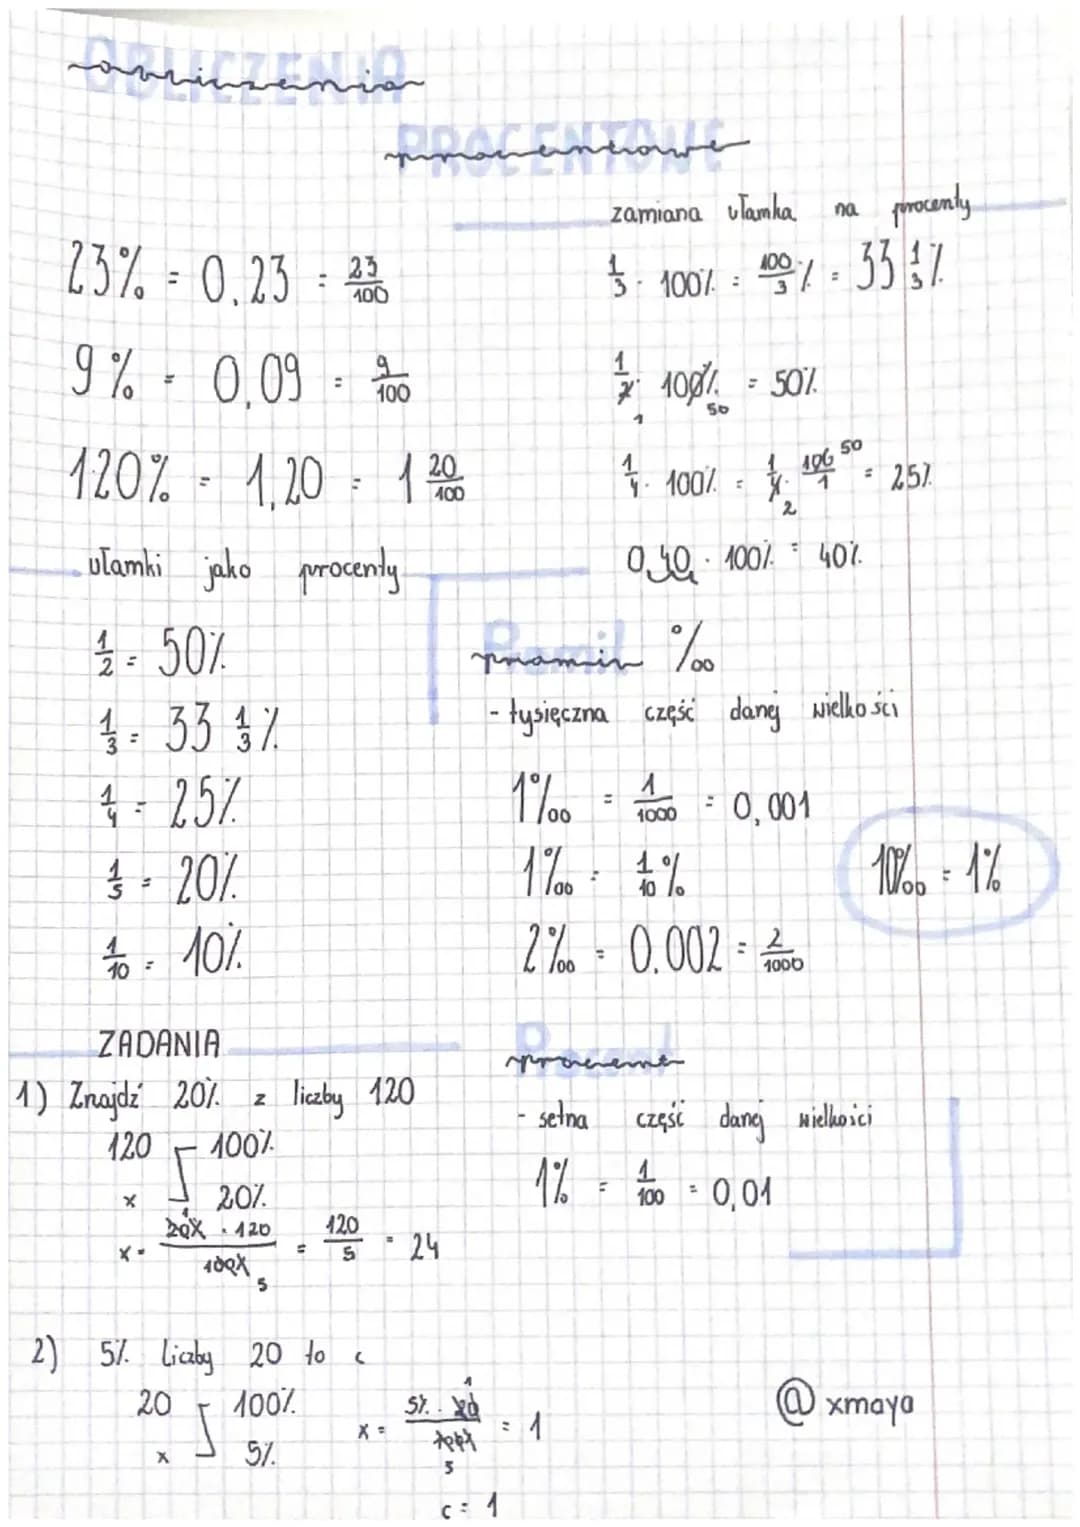 OBLICZENIA
obliczenia
PROCENTOWE
procentowe
23% = 0,23 = 23/100
9% = 0,09 = 9/100
120% = 1,20 = 1 20/100
zamiana ułamka na procenty
1/3 · 100% = 100/3 % = 33 1/3 %
1/2 · 100% = 50%
1 50
1/4 · 100% = 1/4 · 100/1 = 25%
50
2
0,40 · 100% = 40%
ułamki jako procenty
1/2 = 50%
1/3 = 33 1/3 %
1/4 = 25%
1/5 = 20%
1/10 = 10%
Promil
promil ‰
- tysięczna część danej wielkości
1‰ = 1/1000 = 0,001
1‰ = 1/10 %
10‰ = 1%
2‰ = 0,002 = 2/1000
Procent
procent
- setna część danej wielkości
1% = 1/100 = 0,01
ZADANIA
1) Znajdź 20% z liczby 120
120 100%
x 20%
x = 20% · 120 / 100% = 120/5 = 24
1
5
2) 5% liczby 20 to c
20 100%
x 5%
x = 5% · 20 / 100% = 1
1
5
c = 1
@xmaya